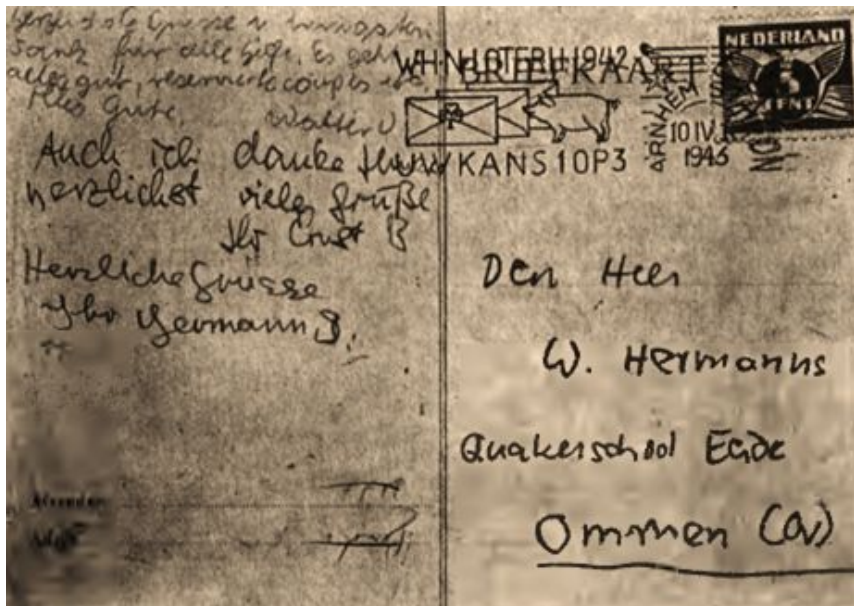 herzliche Grüsse u. innigsten
Dank für alle Hilfe. Es geht
alles gut, reservierte coupés
Alles Gute. Walter
Auch ich danke Ihnen
herzlichst viele Grüße
Ihr Ernst B
Herzliche Grüsse
Ihr Hermann B.
Afzender:
W.H.N. LOTERIJ 1942
BRIEFKAART
UW KANS 10P3
ARNHEM
10 IV
1943
NEDERLAND
5
CENT
Den Heer
W. Hermanns
Quakerschool Eerde
Ommen (Ov)